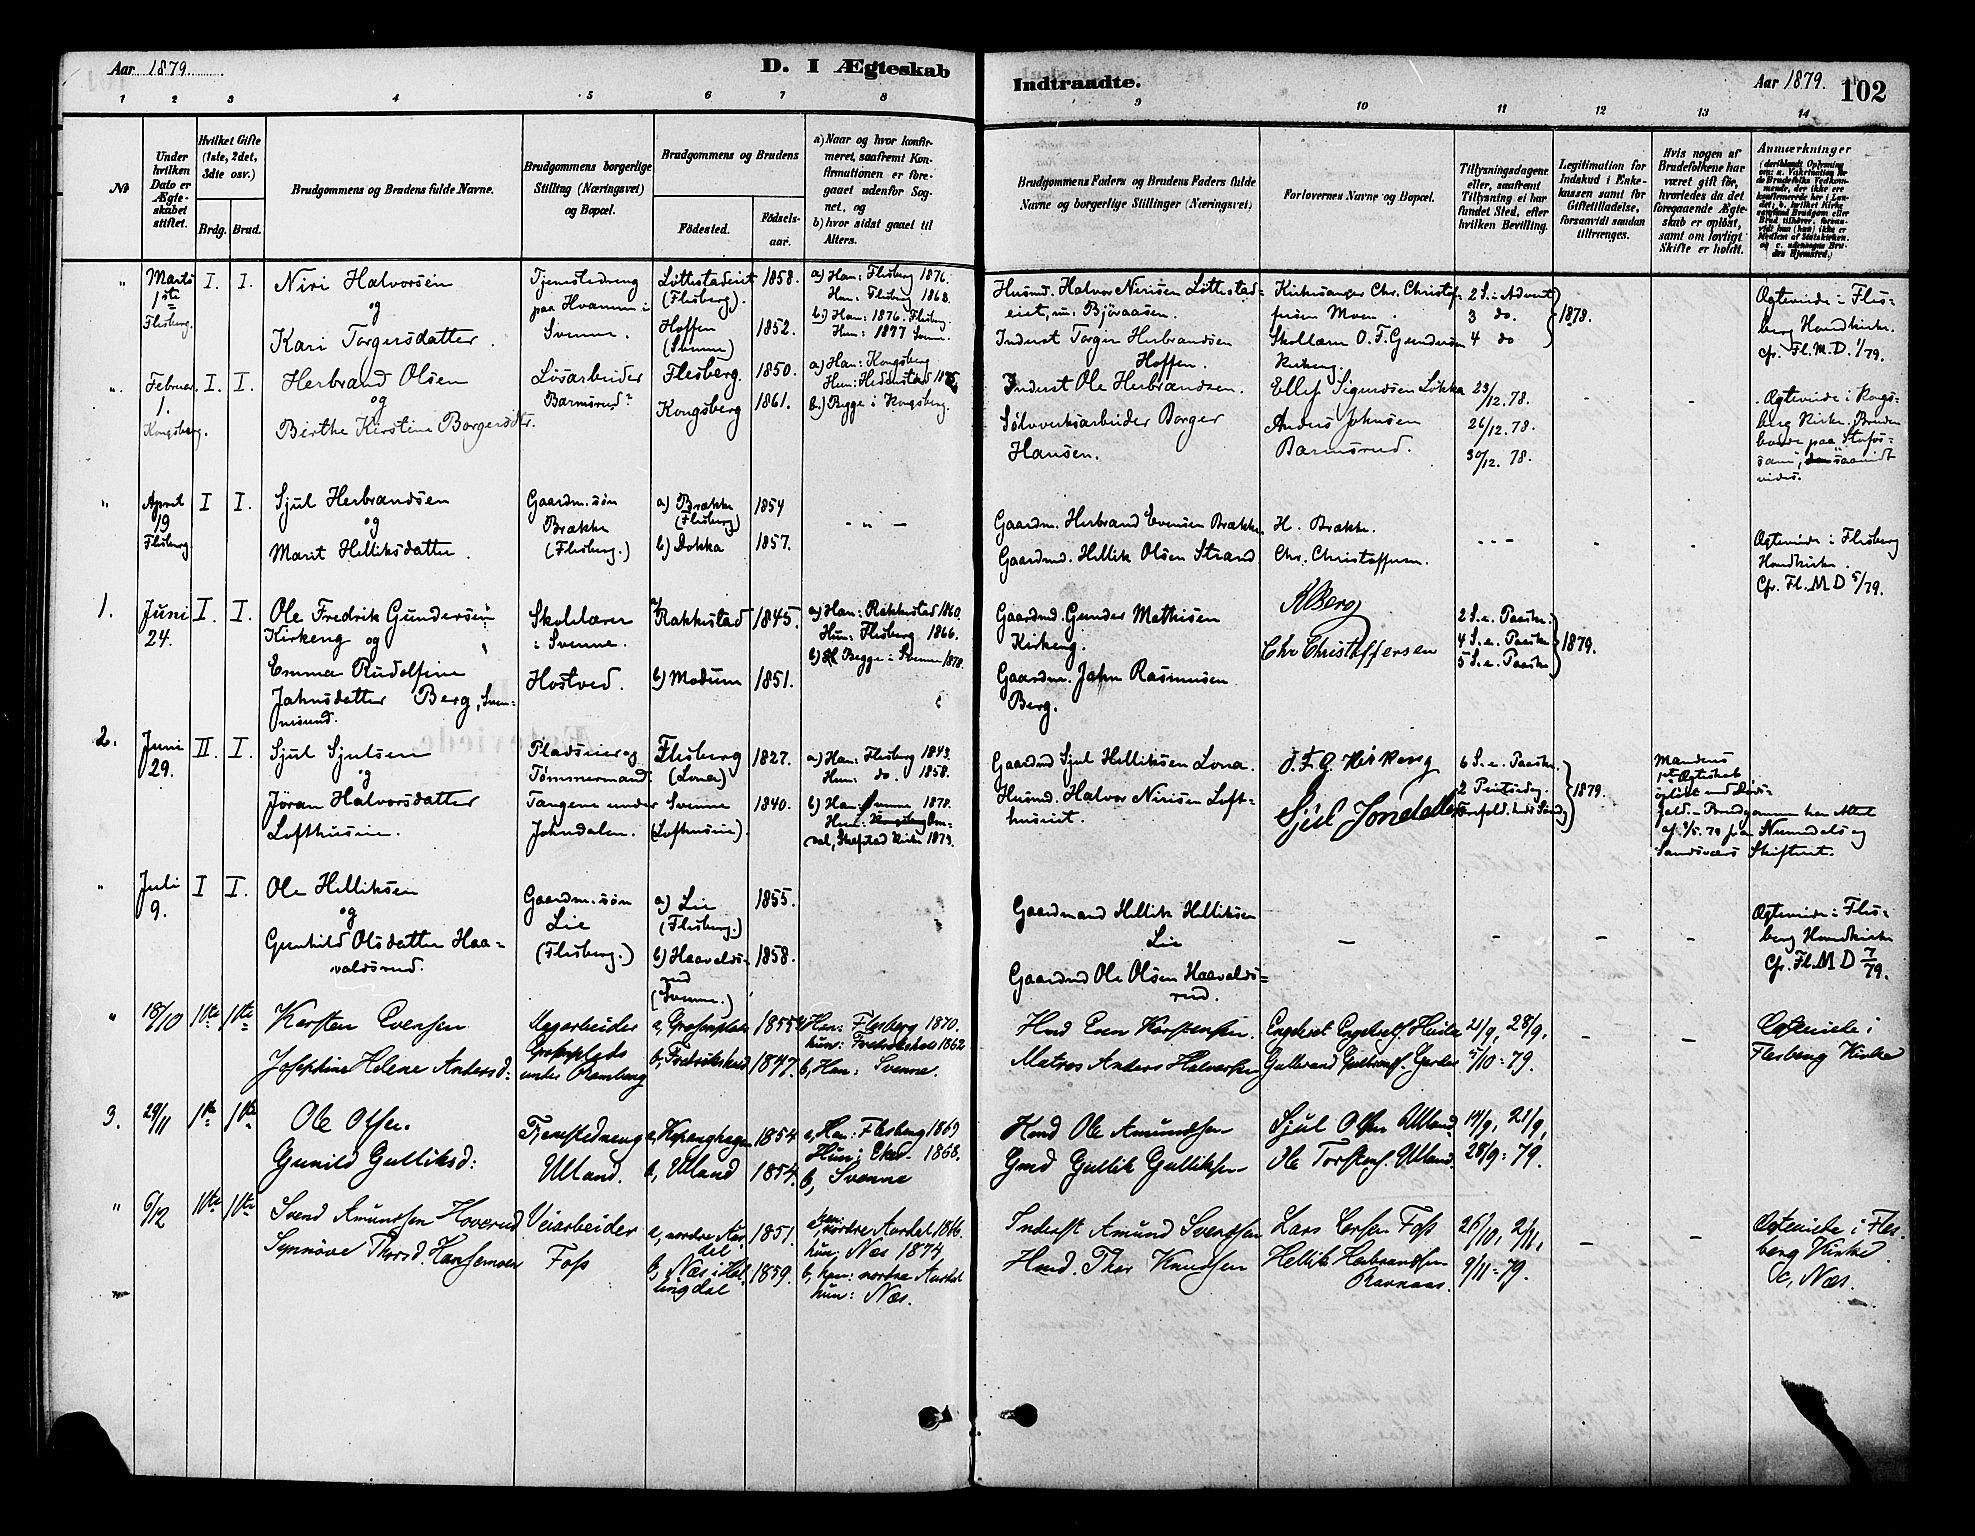 Aar 1879.
D. I Ægteskab
Indtraadte.
Aar 1879.
102
1 2 3 4 5 6 7 8 9 10 11 12 13 14
No
Under hvilken Dato er Ægteskabet stiftet.
Hvilket Gifte (1ste, 2det, 3dte osv.)
Brdg. Brud.
Brudgommens og Brudens fulde Navne.
Brudgommens borgerlige Stilling (Næringsvei) og Bopæl.
Brudgommens og Brudens
Fødested.
Fødselsaar.
a) Naar og hvor konfirmeret, saafremt Konfirmationen er foregaaet udenfor Sognet, og
b) hvor sidst gaaet til Alters.
Brudgommens Faders og Brudens Faders fulde Navne og borgerlige Stillinger (Næringsvei)
Forlovernes Navne og Bopæl.
Tillysningsdagene eller, saafremt Tillysning ei har fundet Sted, efter hvilken Bevilling.
Legitimation for Indskud i Enkekassen samt for Giftetilladelse, forsaavidt saadan tiltrænges.
Hvis nogen af Brudefolkene har været gift før, hvorledes da det foregaaende Ægteskab er opløst, samt om lovligt Skifte er holdt.
Anmærkninger
" Marts 1ste Flesberg. I. I.
Niri Halvorsen
og
Kari Torgersdatter.
Tjenestedreng
paa Hvammen i
Svenne.
Løttestadeiet (Flesberg). 1858.
Hoffen (Svenne) 1852.
a) Han: Flesberg 1876.
Hun: Flesberg 1868.
b) Han: 1876. Flesberg.
Hun: 1877 Svenne.
Husmd. Halvor Nirisen Løttestad-
eiet, nu: Bjøraasen.
Inderst Torger Herbrandsen
Hoffen.
Kirkesanger Chr. Christof-
fersen Moen.
Skollærer O. F. Gundersen
Kirkeng.
2 S. i Advent
3 do.
4 do
1878.
Ægteviede i Fles-
berg Hovdkirke.
cfr. Fl. M. D. 1/79.
" Februar 1. Kongsberg. I. I.
Herbrand Olsen
og
Birthe Kirstine Borgersdtr.
Løsarbeider
Barmsrud
Flesberg. 1850.
Kongsberg 1861.
a) Han: Kongsberg
Hun: Hedenstad 1875
b) Begge i Kongsberg.
Inderst Ole Herbrandsen.
Sølvverksarbeider Borger
Hansen.
Ellef Sigurdsen Løkka
Anders Johnsen
Barmsrud.
23/12. 78.
26/12. 78.
30/12. 78.
Ægteviede i Kongs-
berg Kirke. Bruden
" April 19 Flesberg I I.
Sjul Herbrandsen
og
Marit Helliksdatter.
Gaardm. søn
Brække
(Flesberg.)
a) Brække (Flesberg) 1854
b) Dokka 1857.
- " -
Gaardm. Herbrand Evensen Brække.
Gaardmd. Hellik Olsen Strand.
H. Brække.
Chr. Christoffersen.
Ægteviede i Flesberg
Hovdkirke.
Cfr. Fl. M D 5/79.
1. Juni 24. I I.
Ole Fredrik Gundersen
Kirkeng og
Emma Rudolfine
Jahnsdatter Berg, Svennesund.
Skolelærer
i Svenne.
Hostved.
a) Rakkestad 1845.
b) Modum 1851.
a) Han: Rakkestad 1860.
Hun: Flesberg 1866.
b) Begge i Svenne 1878.
Gaardmd. Gunder Mathisen
Kirkeng.
Gaardm. Jahn Rasmusen
Berg.
A Berg
Chr Christoffersen
2 S. e. Paaske.
4 S. e. Paaske
5 S. e. Paaske
1879.
2. Juni 29. II I.
Sjul Sjulsen
og
Jøran Halvorsdatter
Lofthuseie.
Pladseier og
Tømmermand.
Tangene under
Johndalen.
Flesberg (Lona) 1827.
Svenne (Lofthuseie). 1840.
a) Han: Flesberg 1843.
Hun: do. 1858.
b) Han: Svenne 1878.
Gaardmd Sjul Helliksen Lona.
Husmd. Halvor Nirisen Loft-
huseiet.
O. F. G. Kirkeng
Sjul Jondalen
6 S. e. Paaske.
2 Pintsedag.
1879.
Mandens
1ste Ægteskab
opløst ved Døds-
fald. Brudgommen har Attest
af 9/5. 79 fra Numedals og
Sandsværs Skifteret.
" Juli 9. I I.
Ole Helliksen
og
Gunhild Olsdatter Haa-
valdsrud.
Gaardm. søn
Lie
(Flesberg.)
a) Lie (Flesberg.) 1855.
b) Haavaldsrud (Svenne.) 1858.
Gaardmand Hellik Helliksen
Lie
Gaardmd Ole Olsen Haavalds-
rud.
Ægteviede i Fles-
berg Hovdkirke
Cfr. Fl. M D 7/79.
" 18/10 1ste 1ste
Karsten Evensen
Josephine Helene Andersd:
under Ramberg
a, 1855
b, Fredrikshald 1847.
a, Han: Flesberg 1870.
hun: Fredrikshald 1862
b, Han: Svenne.
Hmd Even Karstensen.
Matros Anders Halvorsen
21/9, 28/9,
5/10 = 79.
Ægteviede i
Flesberg Kirke
3. 29/11 1ste 1ste
Ole Olsen.
Gunild Gulliksd:
Tjenestedreng
Ulland.
1854
b, Ulland 1854.
a, Han: Flesberg 1869
Hun: Eker. 1868.
b, Svenne
Hmd Ole Amundsen
Gmd Gullik Gulliksen
Sjul Olsen Ulland
Ole Torstens. Ulland.
14/9, 21/9,
28/9 = 79.
" 6/12 1ste 1ste
Svend Amundsen Hoverud
Synnøve Thorsd. Hansemoen
Veiarbeider
Foss
a, nordre Aurdal 1851.
b, Næs i Hallingdal 1859.
a, han: nordre Aurdal 1866.
hun, Næs 1874
b, han: nordre Aurdal
hun: Næs.
Inderst Amund Svendsen
Hmd. Thor Knudsen
Lars Larsen Foss
Hellik Herbrandsen
Ravnaas.
26/10, 2/11,
9/11 = 79.
Ægteviede i Fles-
berg Kirke
c, Næs.